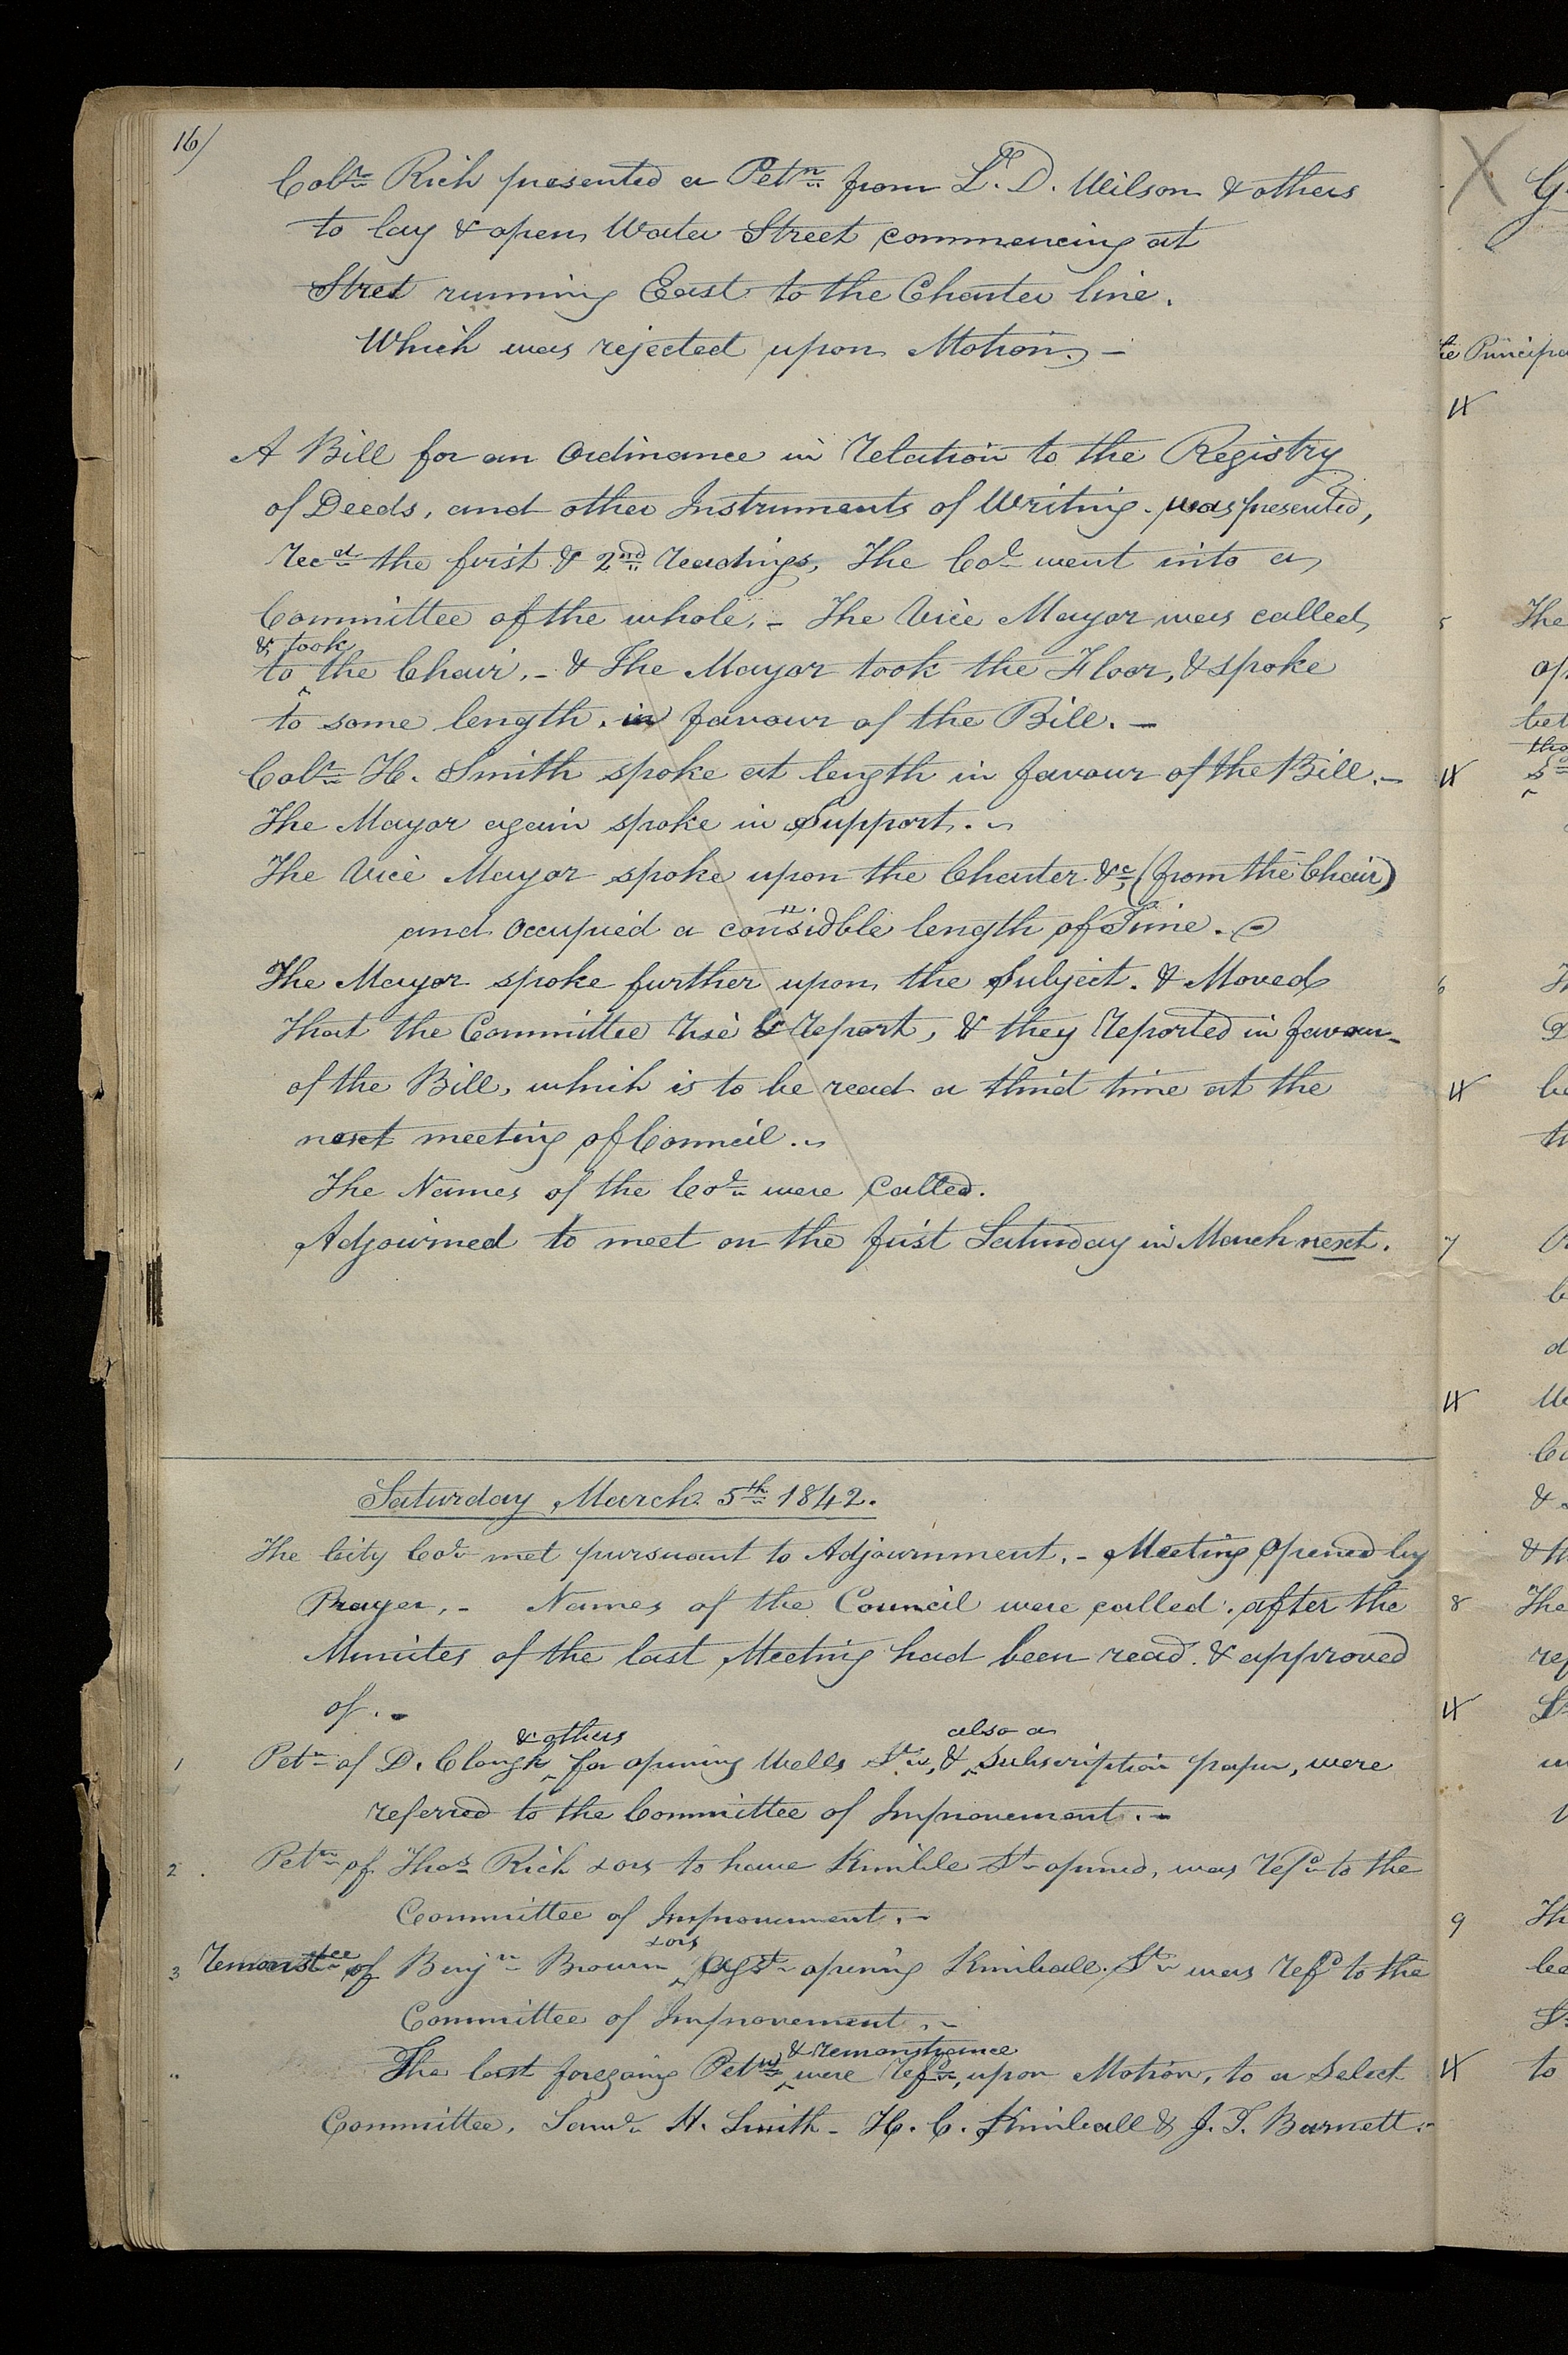 16/
CoLr. Rich presented a Petn. from L. D. Wilson & others
to lay & open Water Street commencing at
Stret running East to the Charter line.
Which was rejected upon Motion. -
A Bill for an Ordinance in relation to the Registry
of Deeds, and other Instruments of Writing. was presented,
recd. the first & 2nd. readings, The Col. went into a
Committee of the whole. - The Vice Mayor was called
& took
to the Chair. - & The Mayor took the Floor, & spoke
to some length. in favour of the Bill. -
Colr. H. Smith spoke at length in favour of the Bill. -
The Mayor again spoke in Support. -
The Vice Mayor spoke upon the Charter &c, (from the Chair)
and Occupied a considble length of Time. -
The Mayor spoke further upon the Subject. & Moved
that the Committee rise & report, & they reported in favour
of the Bill, which is to be read a third time at the
next meeting of Council. -
The Names of the Col. were Called.
Adjourned to meet on the first Saturday in March next.
Saturday March 5th 1842.
The City Col. met pursuant to Adjournment. - Meeting Opened by
Prayer. - Names of the Council were called. after the
Minutes of the last Meeting had been read & approved
of. -
& others also a
1 Petn. of D. Clough for opening Wells St. & Subscription paper, were
referred to the Committee of Improvement. -
2 Petn. of Thos. Rich & ors to have Kimble St. opened, was refd. to the
Committee of Improvement. -
& ors
3 Remonstce of Benjn. Brown agst. opening Kimball St. was refd. to the
Committee of Improvement. -
& remonstrance
" The last foregoing Petns. were refd., upon Motion, to a Select
Committee. Saml. H. Smith - H. C. Kimball & J. T. Barnett. -
he Principa
5 The
6
7
8 The
9 Th
to